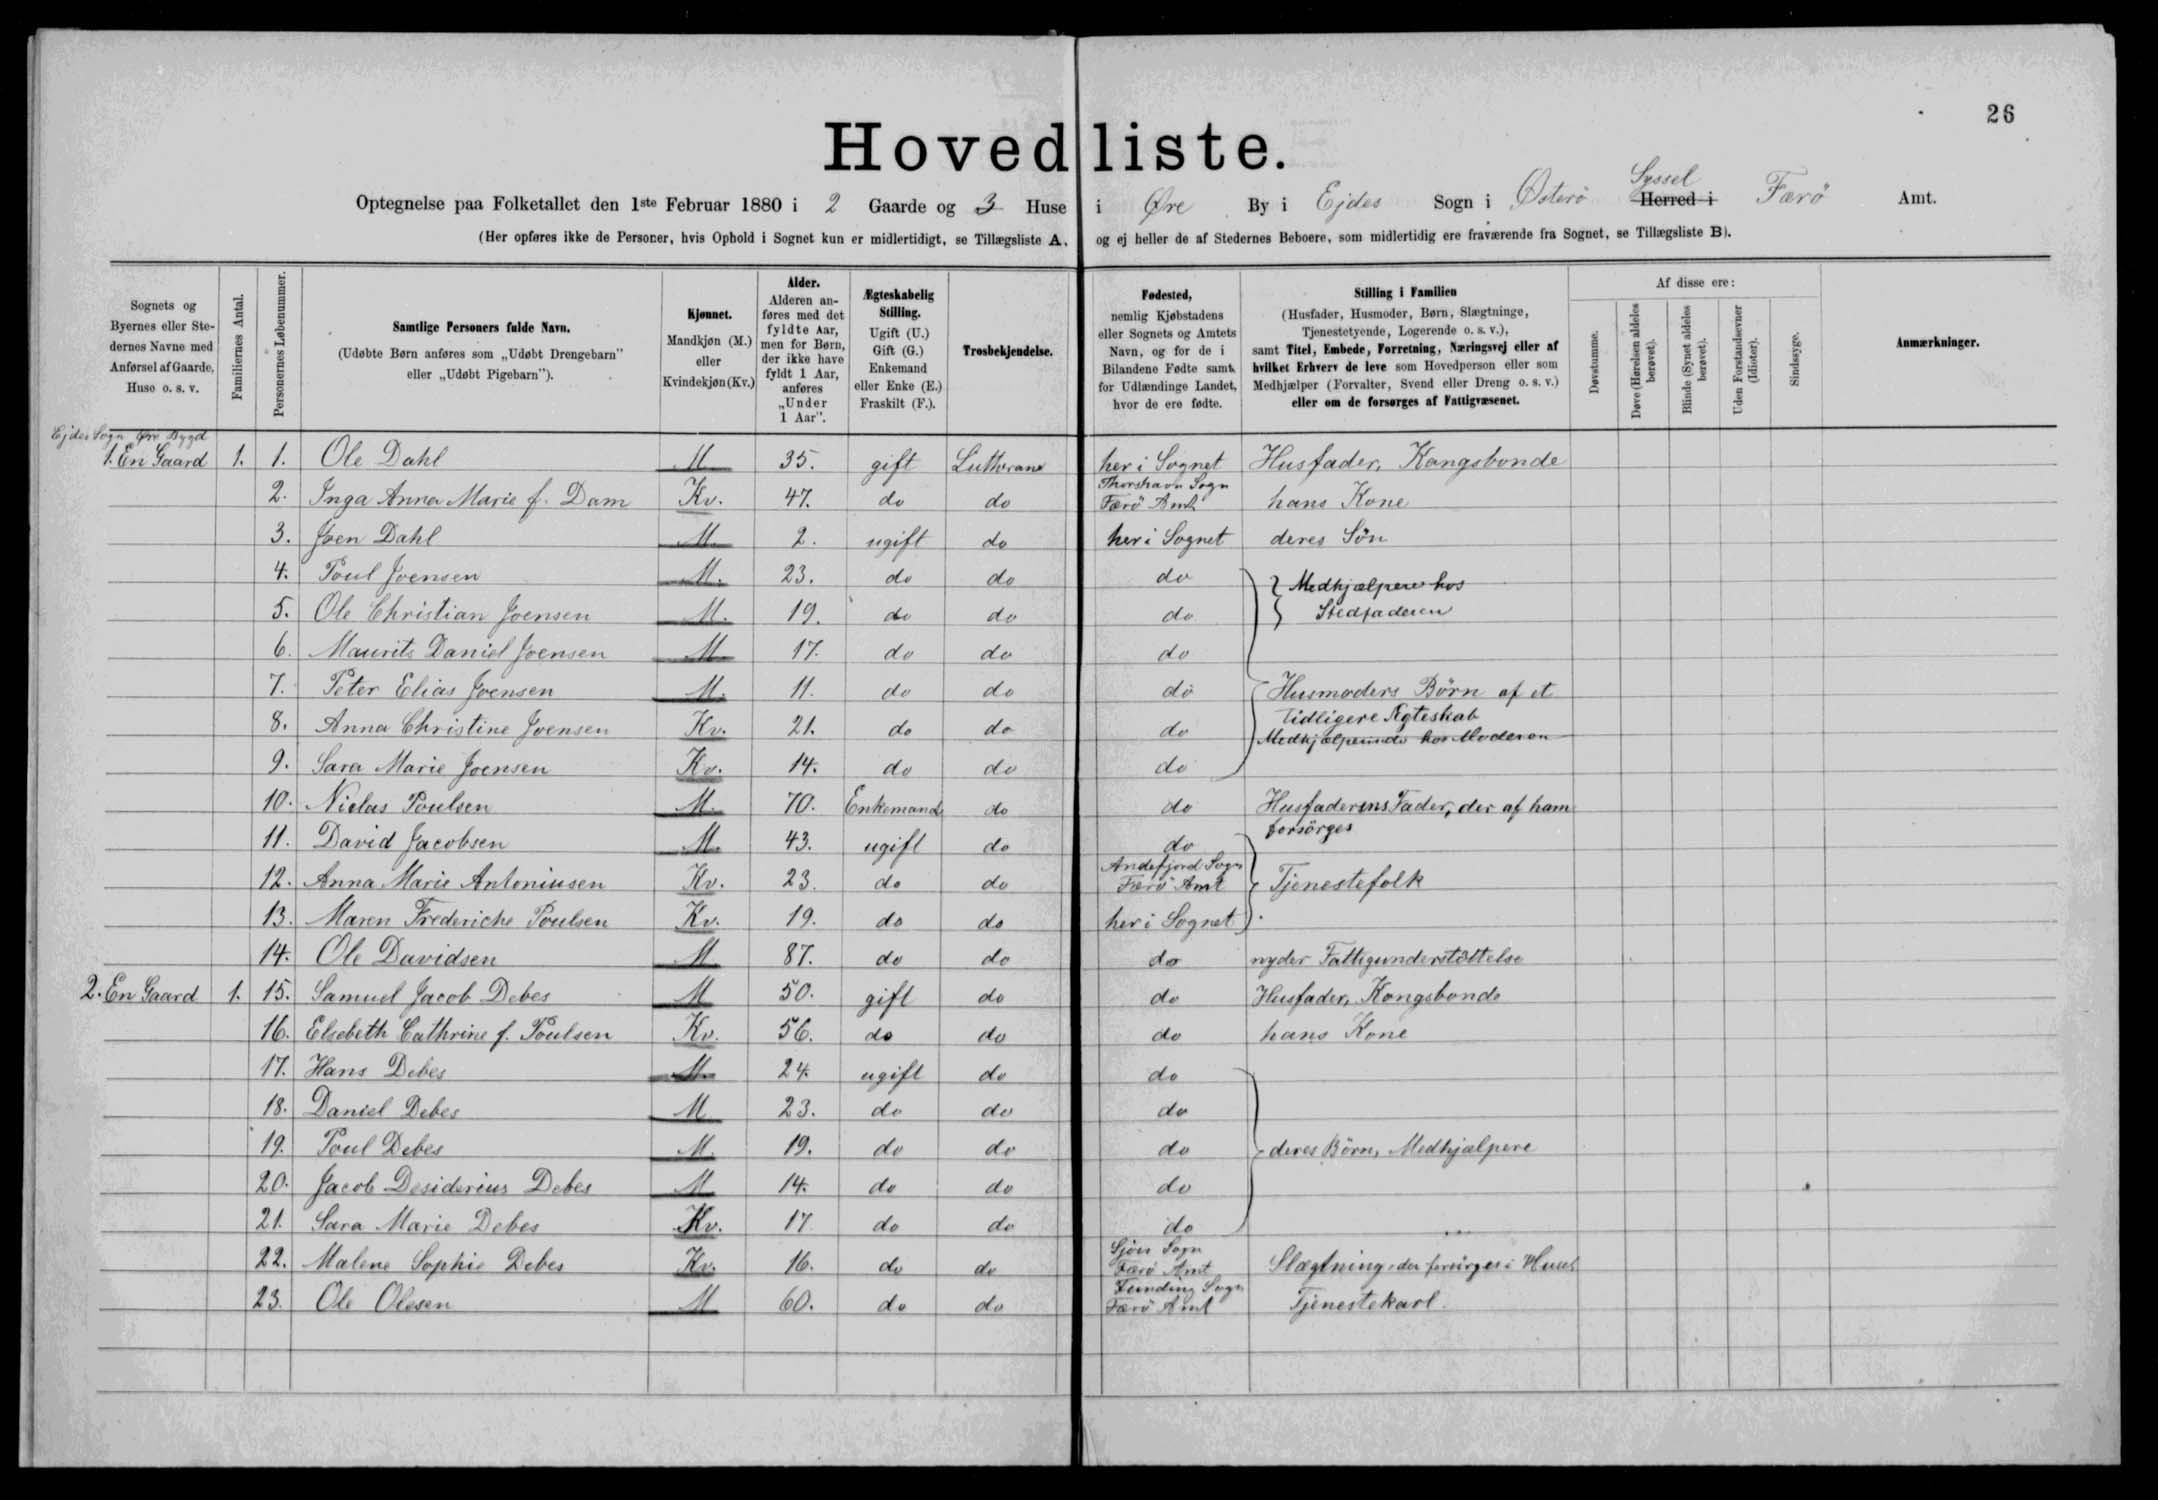 26
Hovedliste.
Optegnelse paa Folketallet den 1ste Februar 1880 i 2 Gaarde og 3 Huse i Øre By i Ejdes Sogn i Østerö Syssel Herred i Færö Amt.
(Her opføres ikke de Personer, hvis Ophold i Sognet kun er midlertidigt, se Tillægsliste A, og ej heller de af Stedernes Beboere, som midlertidig ere fraværende fra Sognet, se Tillægsliste B).
Sognets og Byernes eller Stedernes Navne med Anførsel af Gaarde, Huse o. s. v.
Familiernes Antal.
Personernes Løbenummer.
Samtlige Personers fulde Navn.
(Udøbte Børn anføres som „Udøbt Drengebarn" eller „Udøbt Pigebarn").
Kjønnet.
Mandkjøn (M.) eller Kvindekjøn (Kv.)
Alder.
Alderen anføres med det fyldte Aar, men for Børn, der ikke have fyldt 1 Aar, anføres „Under 1 Aar".
Ægteskabelig Stilling.
Ugift (U.) Gift (G.) Enkemand eller Enke (E.) Fraskilt (F.).
Trosbekjendelse.
Fødested,
nemlig Kjøbstadens eller Sognets og Amtets Navn, og for de i Bilandene Fødte samt for Udlændinge Landet, hvor de ere fødte.
Stilling i Familien
(Husfader, Husmoder, Børn, Slægtninge, Tjenestetyende, Logerende o. s. v.),
samt Titel, Embede, Forretning, Næringsvej eller af hvilket Erhverv de leve som Hovedperson eller som Medhjælper (Forvalter, Svend eller Dreng o. s. v.) eller om de forsørges af Fattigvæsenet.
Af disse ere:
Døvstumme.
Døve (Hørelsen aldeles berøvet).
Blinde (Synet aldeles berøvet).
Uden Forstandsevner (Idioter).
Sindssyge.
Anmærkninger.
Ejdes Sogn Øre Bygd
1. En Gaard 1. 1. Ole Dahl M 35. gift Lutheran her i Sognet Husfader, Kongsbonde
2. Inga Anna Marie f. Dam Kv. 47. do do Thorshavn Sogn Færö Amt hans Kone
3. Joen Dahl M. 2. ugift do her i Sognet deres Sön
4. Poul Joensen M. 23. do do do Medhjælpere hos
5. Ole Christian Joensen M. 19. do do do Stedfaderen
6. Maurits Daniel Joensen M 17. do do do
7. Peter Elias Joensen M. 11. do do do Husmoders Börn af et
8. Anna Christine Joensen Kv. 21. do do do tidligere Ægteskab
Medhjælpende hos Moderen
9. Sara Marie Joensen Kv. 14. do do do
10. Niclas Poulsen M. 70. Enkemand do do Husfaderens Fader, der af ham forsörges
11. David Jacobsen M. 43. ugift do do
12. Anna Marie Antoniusen Kv. 23. do do Andefjord Sogn Færö Amt Tjenestefolk
13. Maren Frederiche Poulsen Kv. 19. do do her i Sognet
14. Ole Davidsen M 87. do do do nyder Fattigunderstöttelse
2. En Gaard 1. 15. Samuel Jacob Debes M 50. gift do do Husfader, Kongsbonde
16. Elsebeth Cathrine f. Poulsen Kv. 56. do do do hans Kone
17. Hans Debes M. 24. ugift do do
18. Daniel Debes M 23. do do do
19. Poul Debes M. 19. do do do deres Börn, Medhjælpere
20. Jacob Desiderius Debes M 14. do do do
21. Sara Marie Debes Kv. 17 do do do
22. Malene Sophie Debes Kv. 16. do do Gjøv Sogn Færö Amt Slægtning, der forsörges i Huset
23. Ole Olesen M 60. do do Funding Sogn Færö Amt Tjenestekarl.